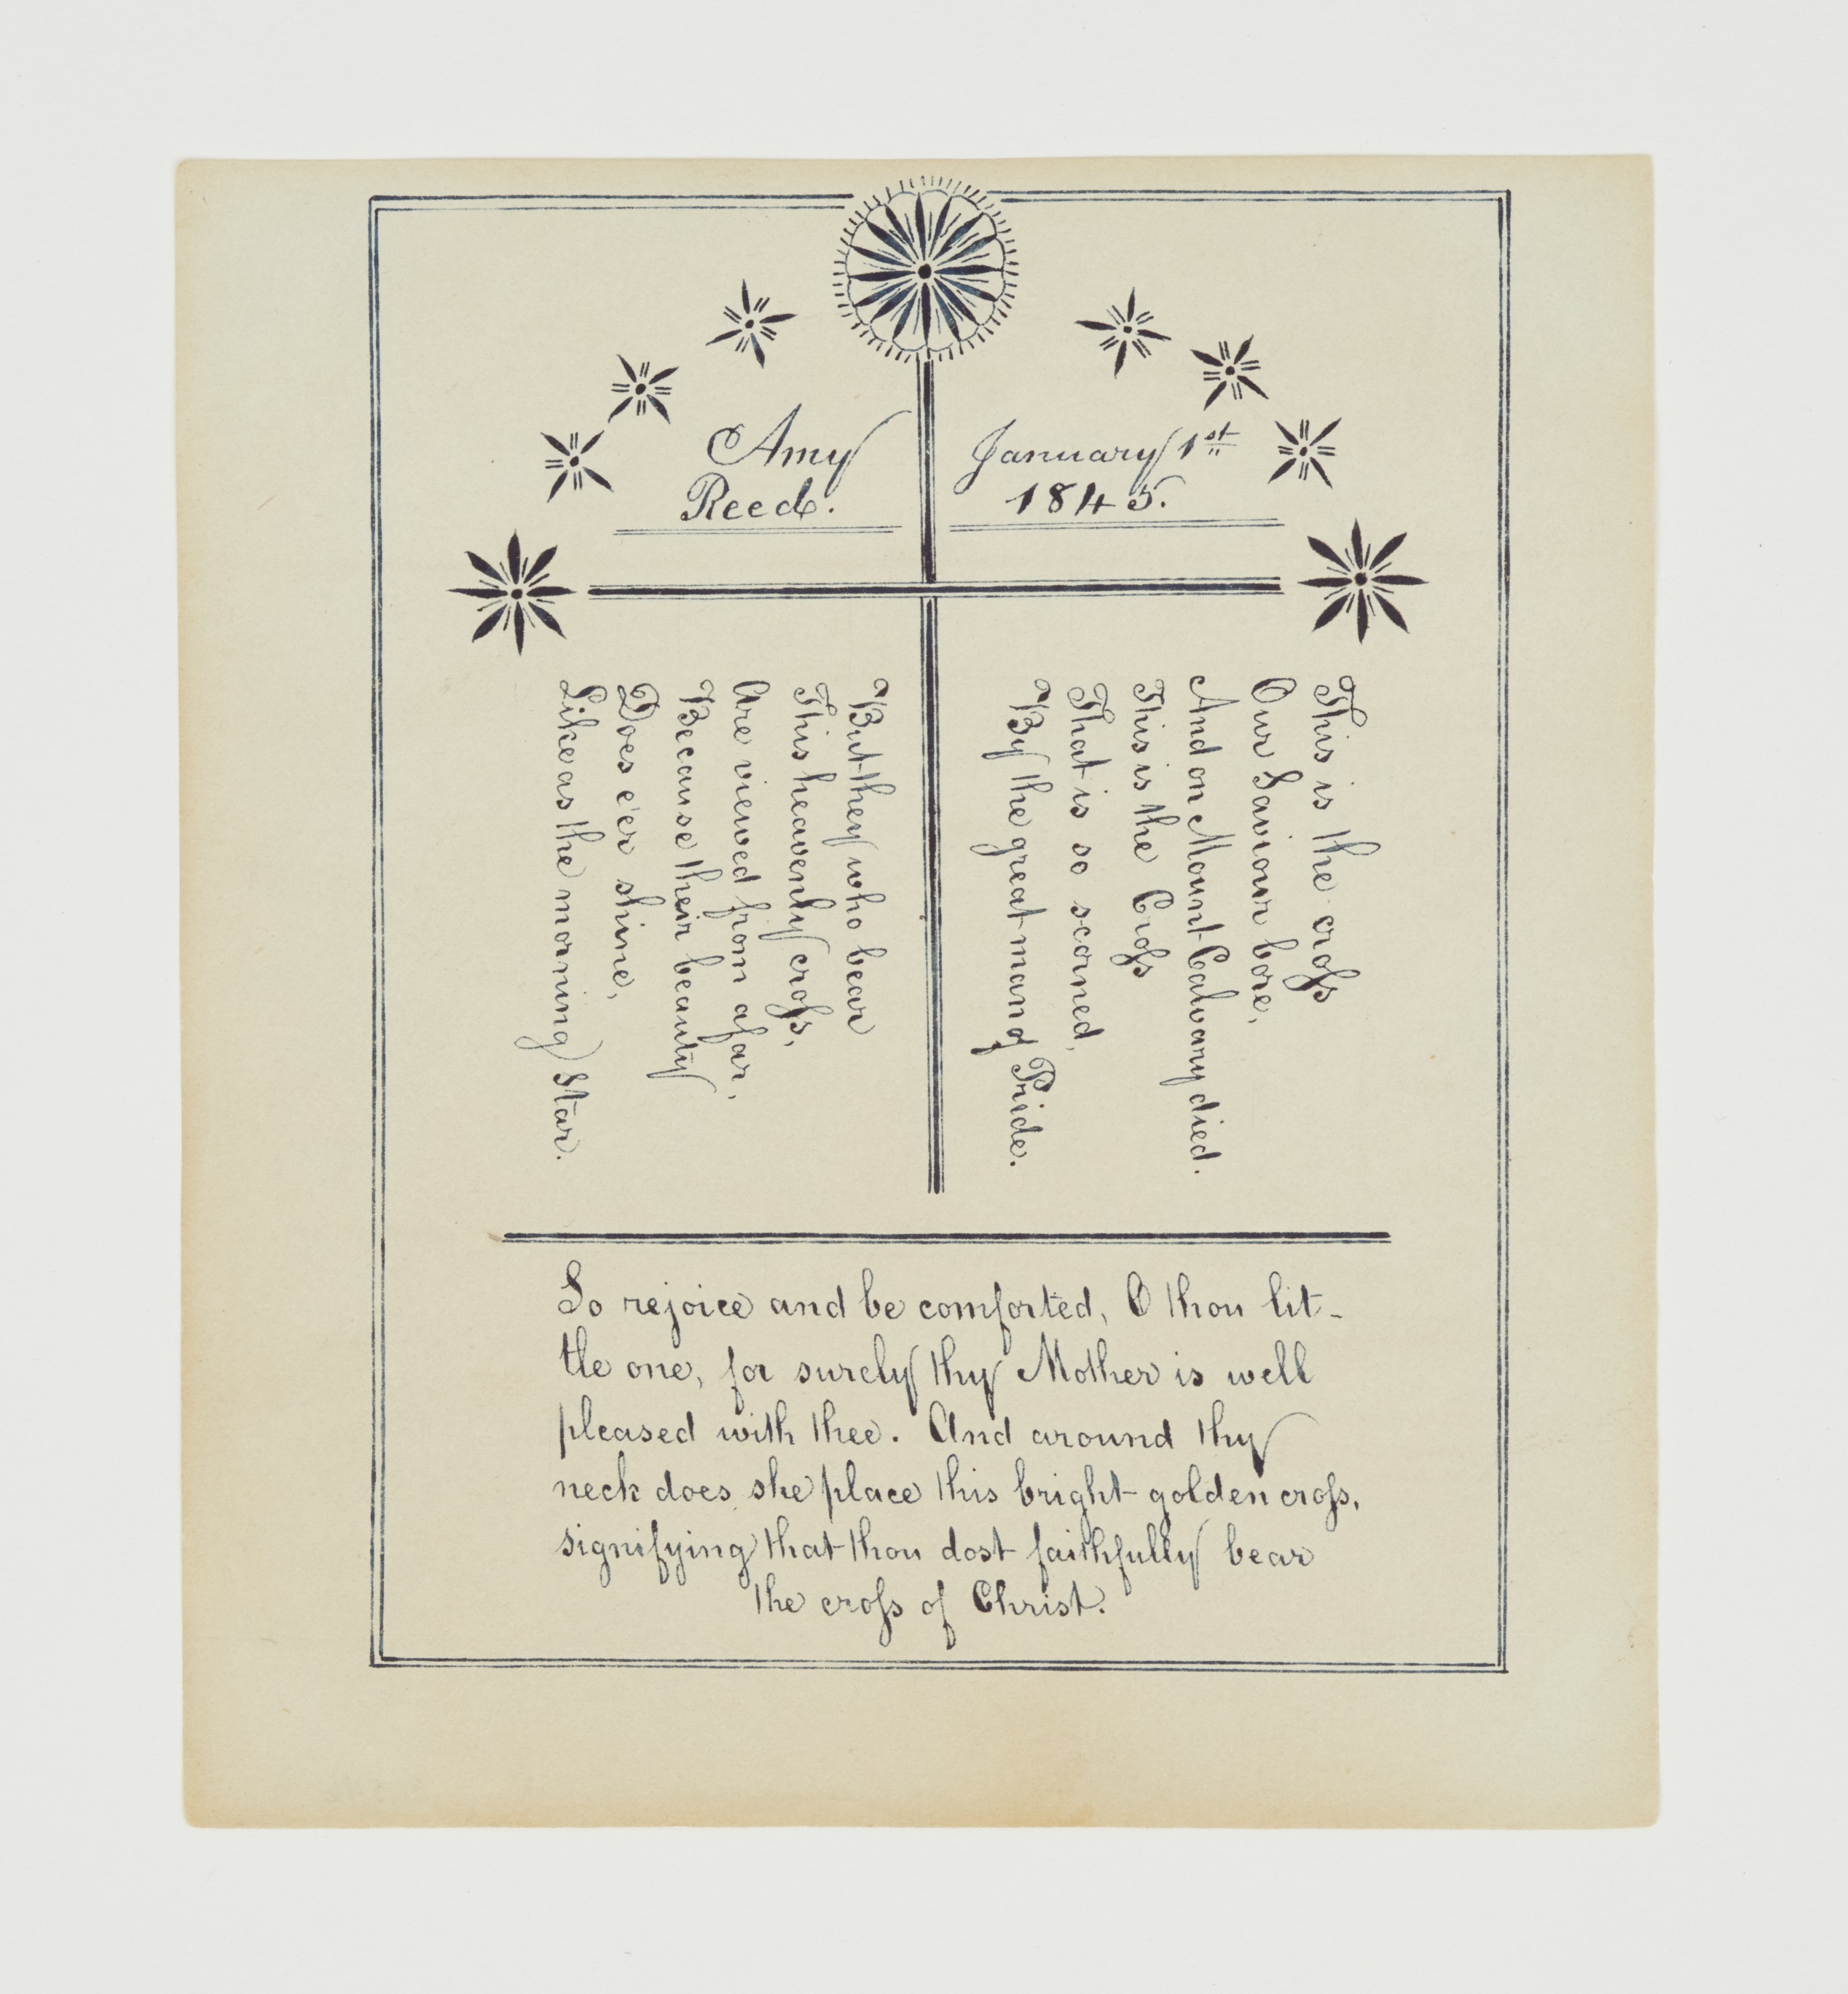 Amy
Reed.
January 1st
1845.
This is the croſs
Our Saviour bore,
And on Mount Calvary died.
This is the Croſs
That is so scorned,
By the great man of Pride.
But they who bear
This heavenly croſs,
Are viewed from afar,
Because their beauty
Does e'er shine,
Like as the morning Star.
So rejoice and be comforted, O thou lit-
tle one, for surely thy Mother is well
pleased with thee. And around thy
neck does she place this bright golden croſs,
signifying that thou dost faithfully bear
the croſs of Christ.